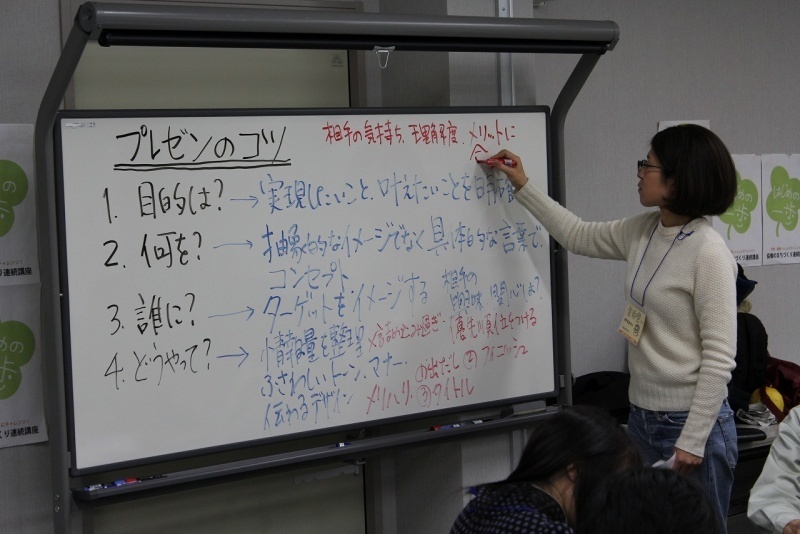 プレゼンのコツ
相手の気持ち、理解度、メリットに
合
1. 目的は? → 実現したいこと、叶えたいことを明確
2. 何を? → 抽象的なイメージでなく具体的な言葉で、
コンセプト
3. 誰に? → ターゲットをイメージする 相手の
興味 関心は?
4. どうやって? → 情報量を整理 ×詰め込み過ぎ 優先順位をつける
ふさわしいトーン、マナー、 ①出だし ②フィニッシュ
伝わるデザイン メリハリ ③タイトル
はじめの
一歩
づくり連続講座
の
歩
くり連続講座